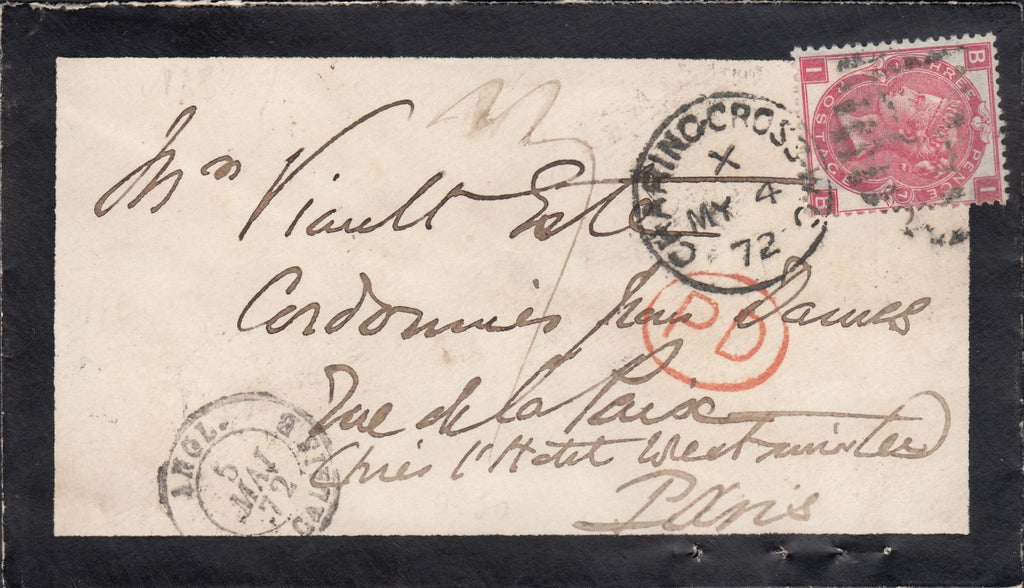 Mrs Viault Este
Cordonnier pour Dames
Rue de la Paix
Près l'Hotel Westminster
Paris
CHARING-CROSS
X
MY 4
72
PD
ANGL.
5
MAI
72
CALAIS
THREE PENCE
POSTAGE
B I
I B